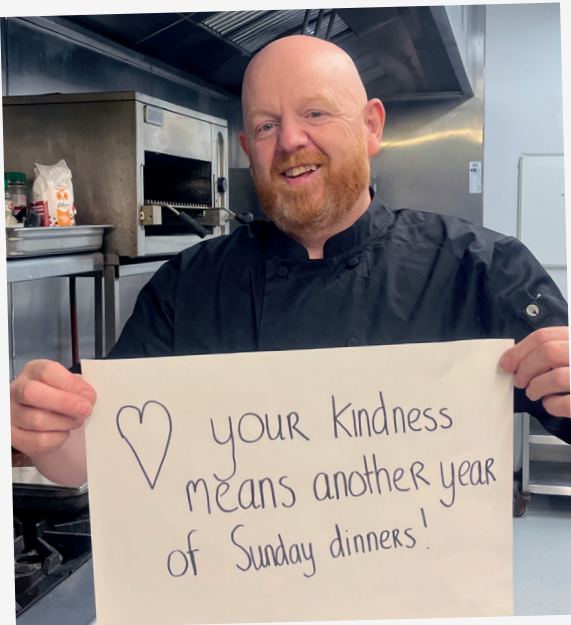 ♡ YOUR Kindness
means another year
of Sunday dinners!